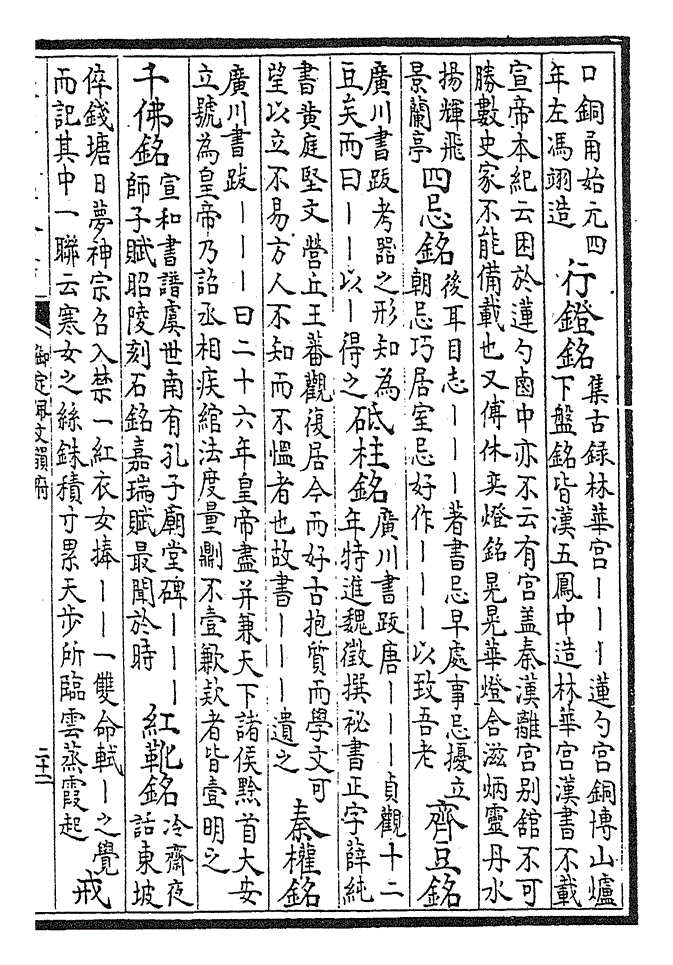 口銅甬始元四年左馮翊造 行鐙銘 集古録林華宮丨丨丨蓮勺宮銅博山爐下盤銘皆漢五鳳中造林華宮漢書不載
宣帝本紀云困於蓮勺鹵中亦不云有宮盖秦漢離宮别舘不可勝數史家不能備載也又傅休奕燈銘晃晃華燈含滋炳靈丹水
揚輝飛景蘭亭 四忌銘 後耳目志丨丨丨著書忌早處事忌擾立朝忌巧居室忌好作丨丨丨以致吾老 齊豆銘
廣川書跋考器之形知為豆矣而曰丨丨以丨得之 砥柱銘 廣川書跋唐丨丨丨貞觀十二年特進魏徵撰祕書正字薛純
書黄庭堅文營丘王蕃觀復居今而好古抱質而學文可望以立不易方人不知而不愠者也故書丨丨丨遺之 秦權銘
廣川書跋丨丨丨曰二十六年皇帝盡并兼天下諸侯黔首大安立號為皇帝乃詔丞相疾綰法度量鼎不壹歉欵者皆壹明之
千佛銘 宣和書譜虞世南有孔子廟堂碑丨丨丨師子賦昭陵刻石銘嘉瑞賦最聞於時 紅靴銘 冷齋夜話東坡
倅錢塘日夢神宗召入禁一紅衣女捧丨丨一雙命軾丨之覺而記其中一聯云寒女之絲銖積寸累天步所臨雲蒸霞起 戒
御定佩文韻府
二十二